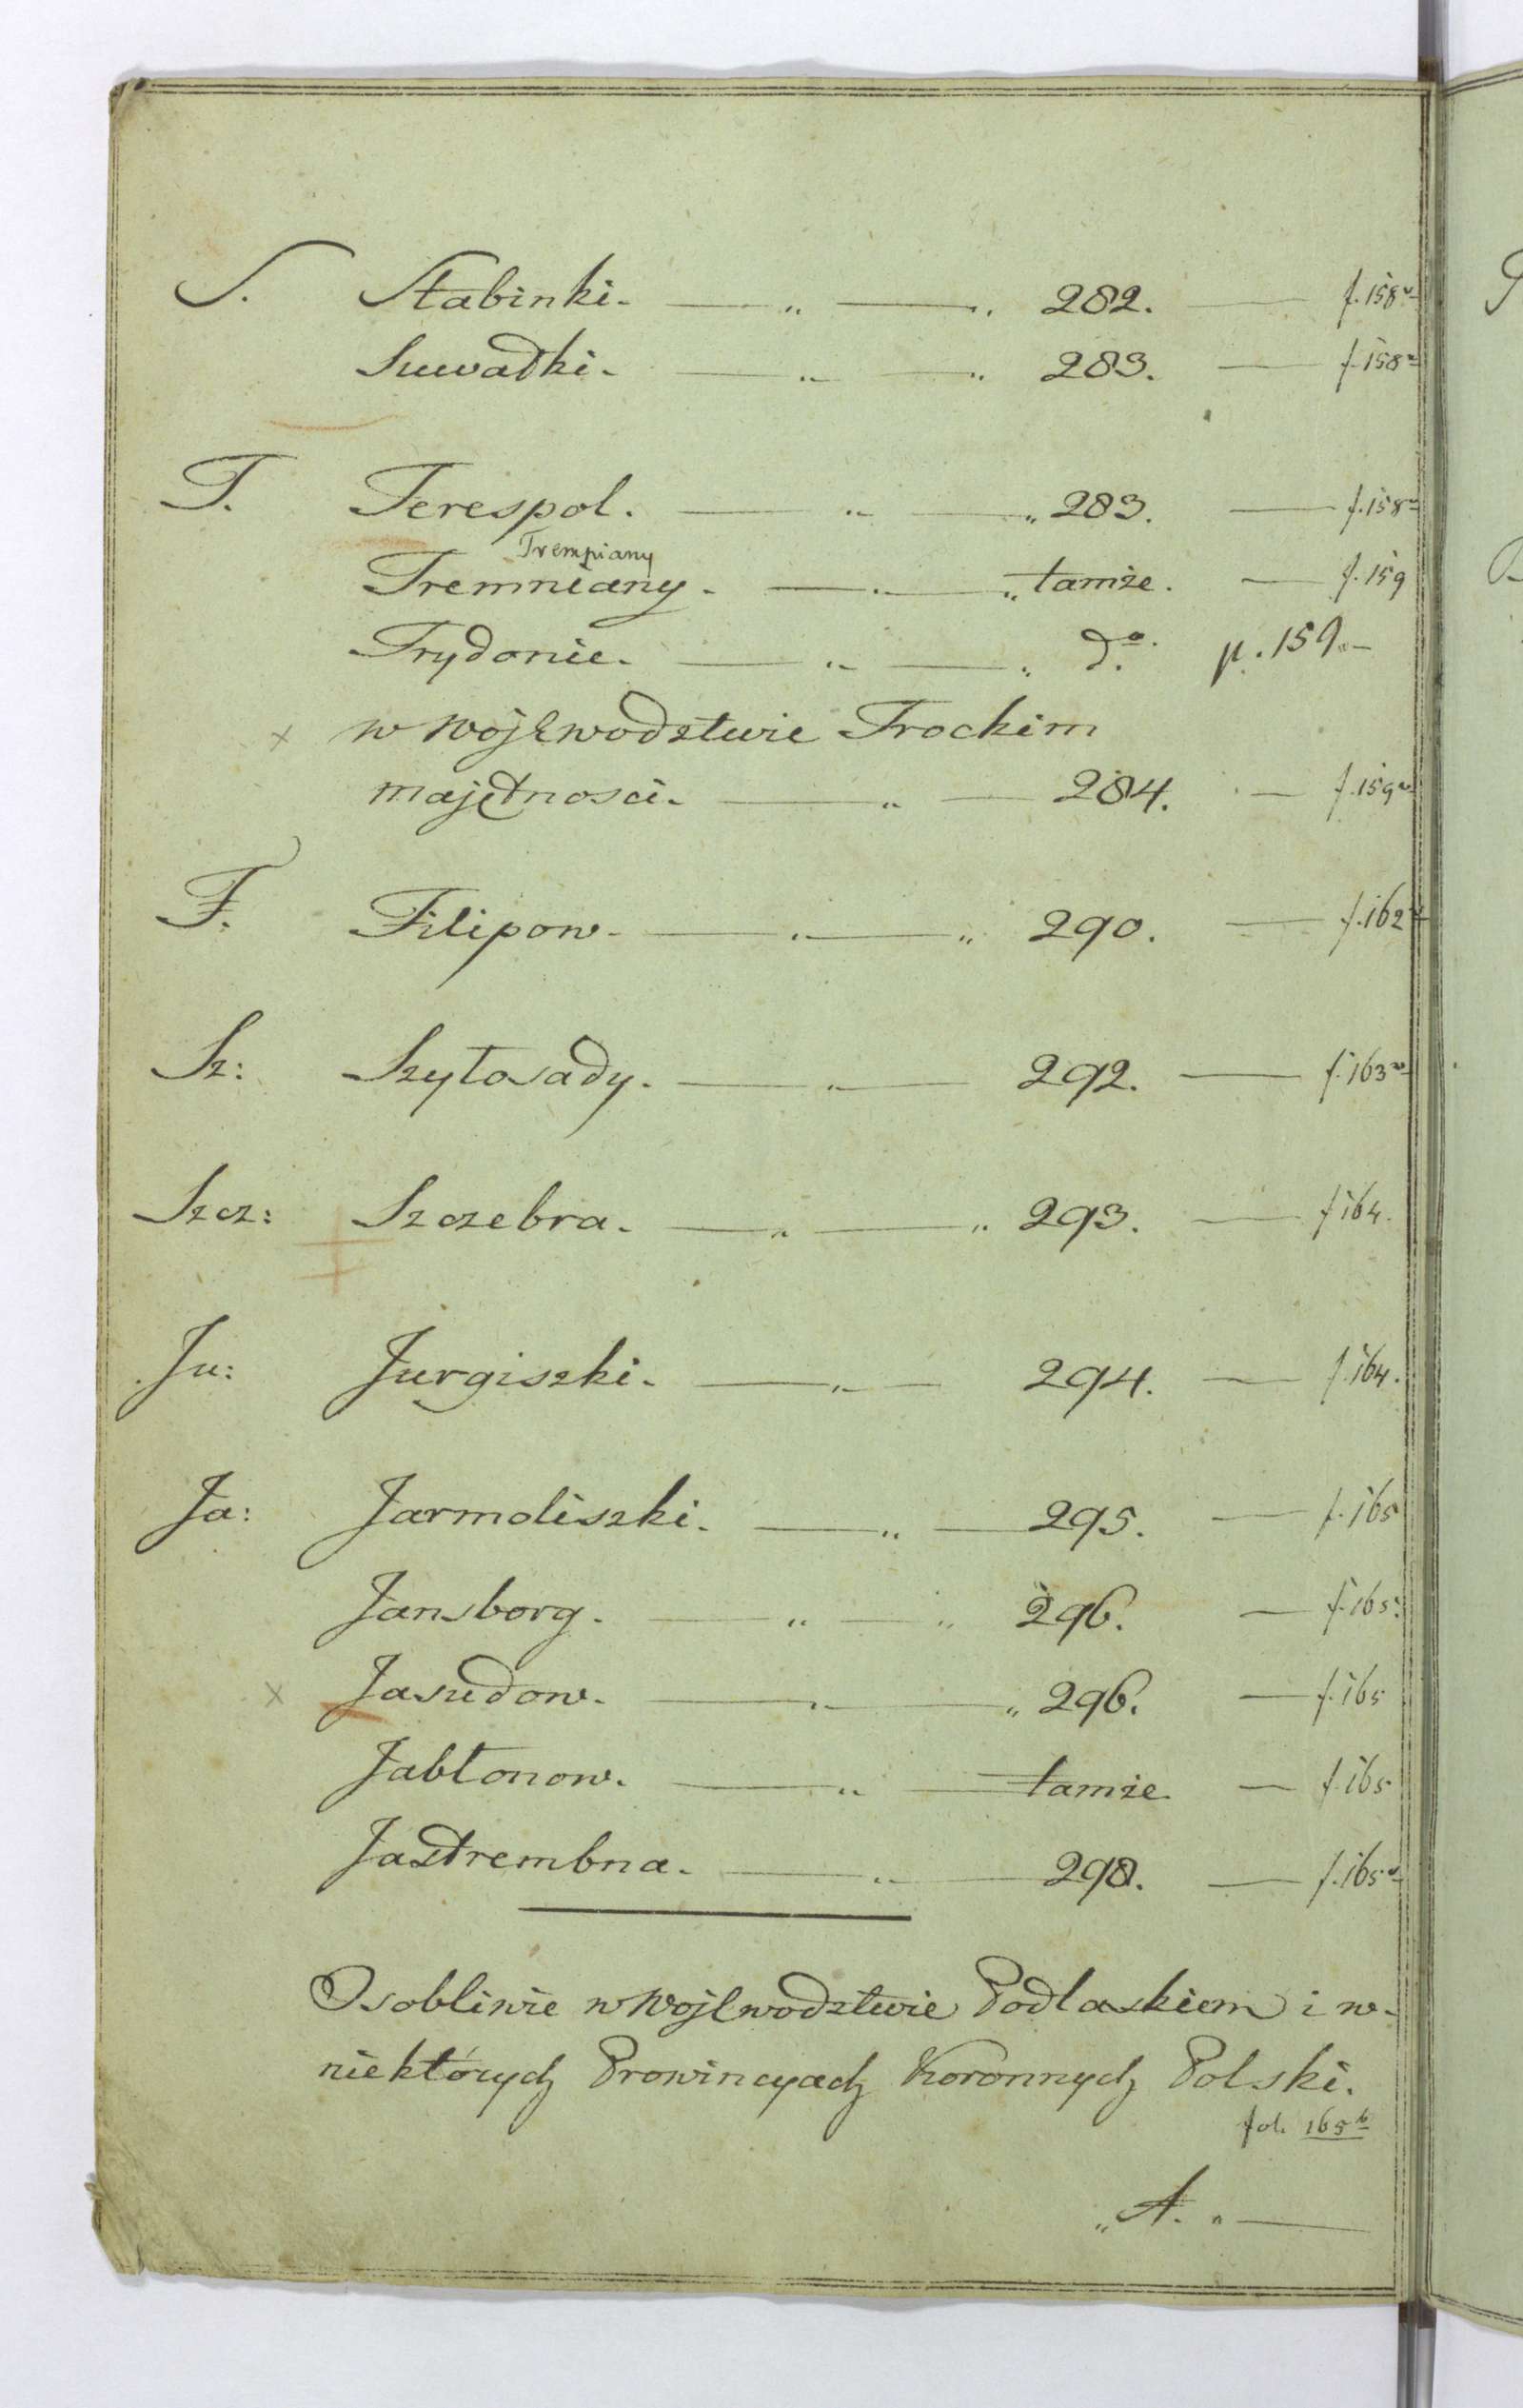 S. Stabinki. — „ — „ 282. — f. 158v
Suwałki. — „ — „ 283. — f. 158v
T. Terespol. — „ — „ 283. — f. 158v
Trempiany
Tremniany. — „ — „ tamże. — f. 159
Trydonie. — „ — „ do. p. 159. „ —
× w Wojewodztwie Trockim
majętnosci. — „ — 284. — f. 159v
F. Filipow. — „ — „ 290. — f. 162v
Sz: Szytosady. — „ — 292. — f. 163v
Szcz: Szczebra. — „ — „ 293. — f 164.
Ju: Jurgiszki. — „ — 294. — f. 164.
Ja: Jarmoliszki. — „ — 295. — f. 165
Jansborg. — „ — „ 296. — f. 165.
× Jasudow. — „ — „ 296. — f. 165
Jabłonow. — „ — tamże. — f. 165
Jastrembna. — „ — 298. — f. 165v
Osobliwie w Wojewodztwie Podlaskiem i w
niektórych Prowincyach Koronnych Polski.
fol. 165b
„ A. „ —